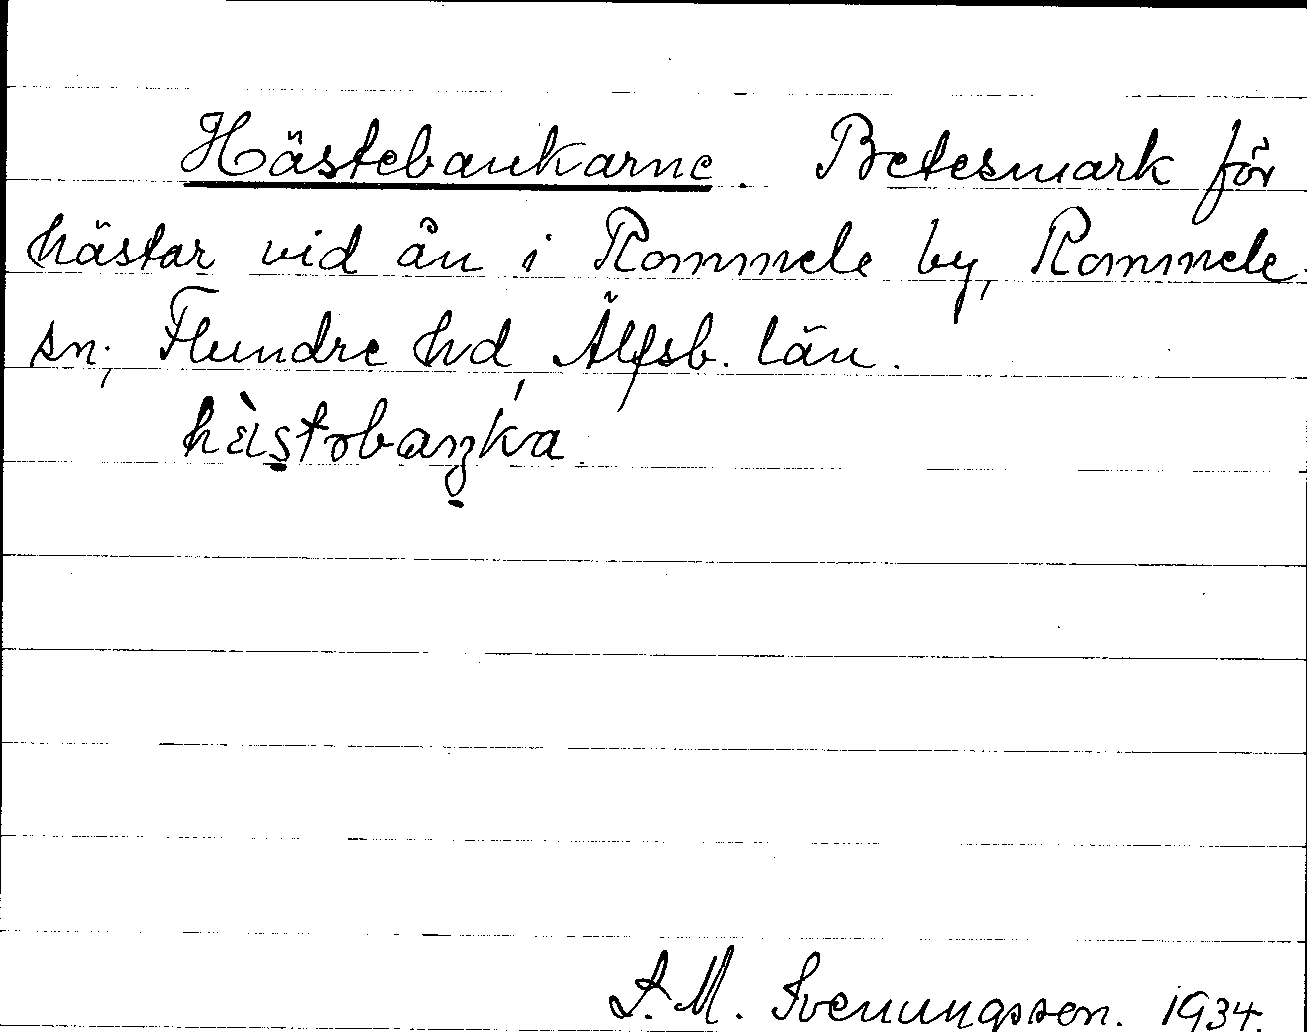 Hästebankarne. Betesmark för
hästar vid ån i Rommele by, Rommele
sn; Flundre hd, Älfsb. län.
S. M. Svenungsson. 1934.